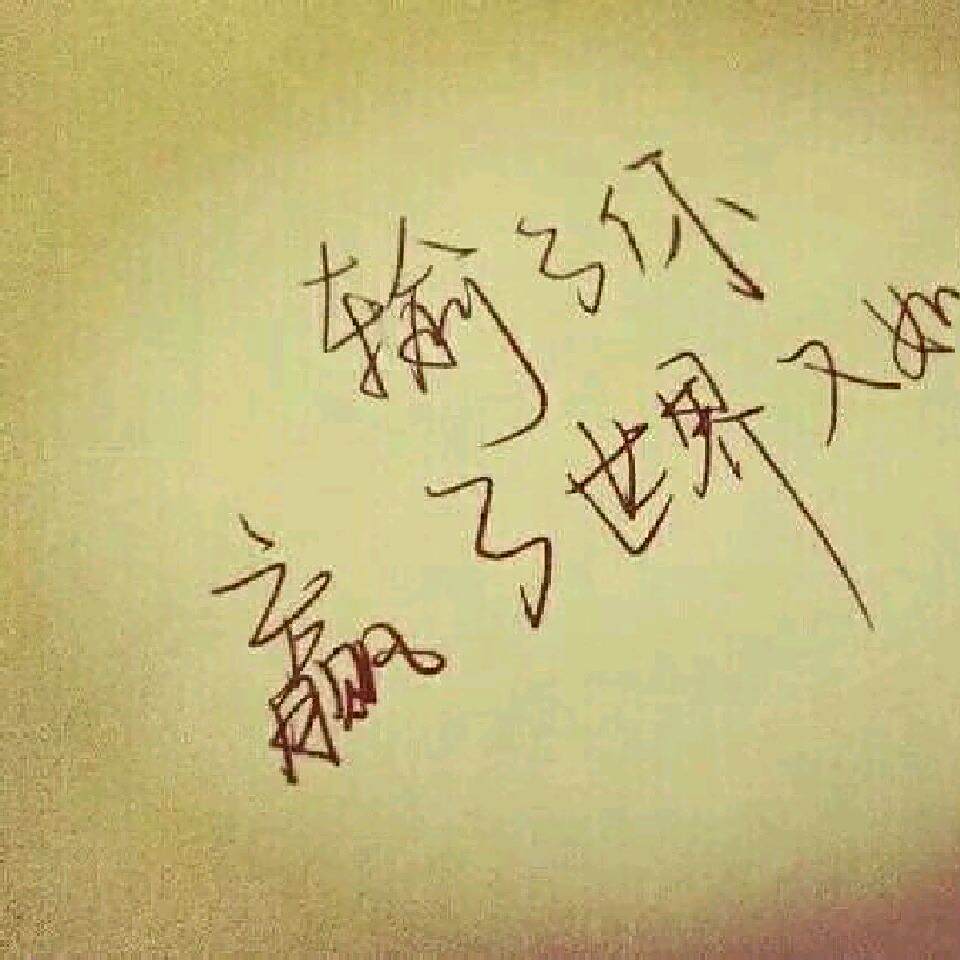 输了你
赢了世界又如